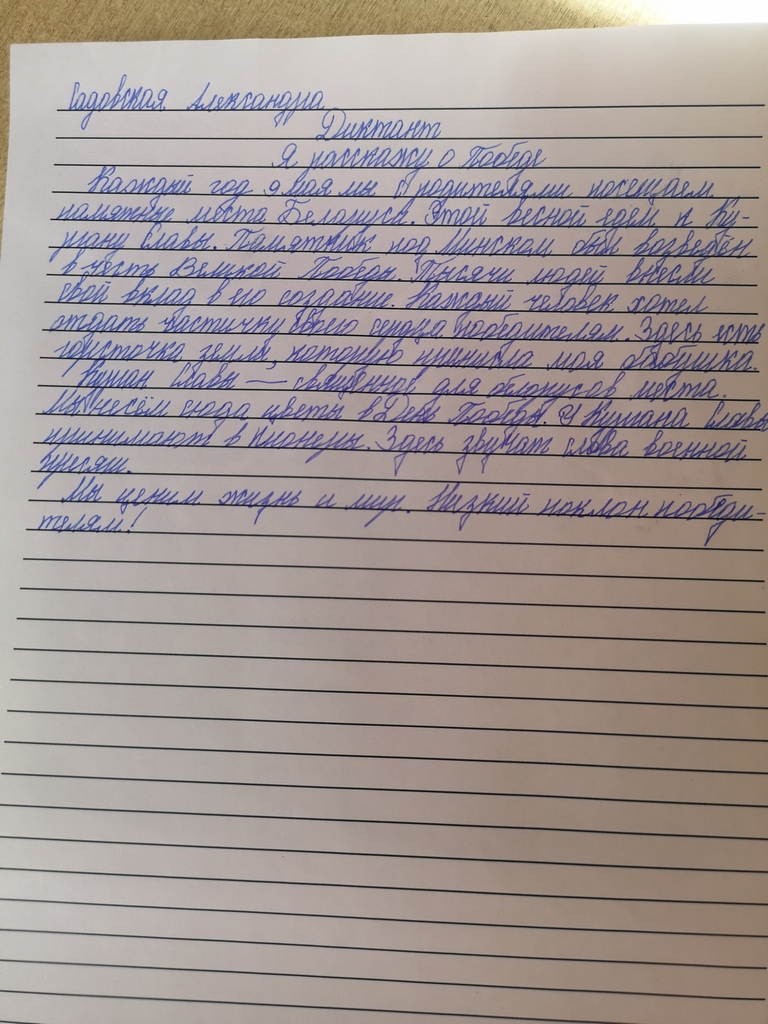 Садовская Александра
Диктант
Я расскажу о Победе
Каждый год 9 мая мы с родителями посещаем
памятные места Беларуси. Этой весной едем к Ку-
ргану Славы. Памятник под Минском был возведён
в честь Великой Победы. Тысячи людей внесли
свой вклад в его создание. Каждый человек хотел
отдать частичку своего сердца победителям. Здесь есть
горсточка земли, которую принесла моя бабушка.
Курган Славы — священное для белорусов места.
Мы несём сюда цветы в День Победы. У Кургана Славы
принимают в пионеры. Здесь звучат слова военной
присяги.
Мы ценим жизнь и мир. Низкий поклон победи-
телям!